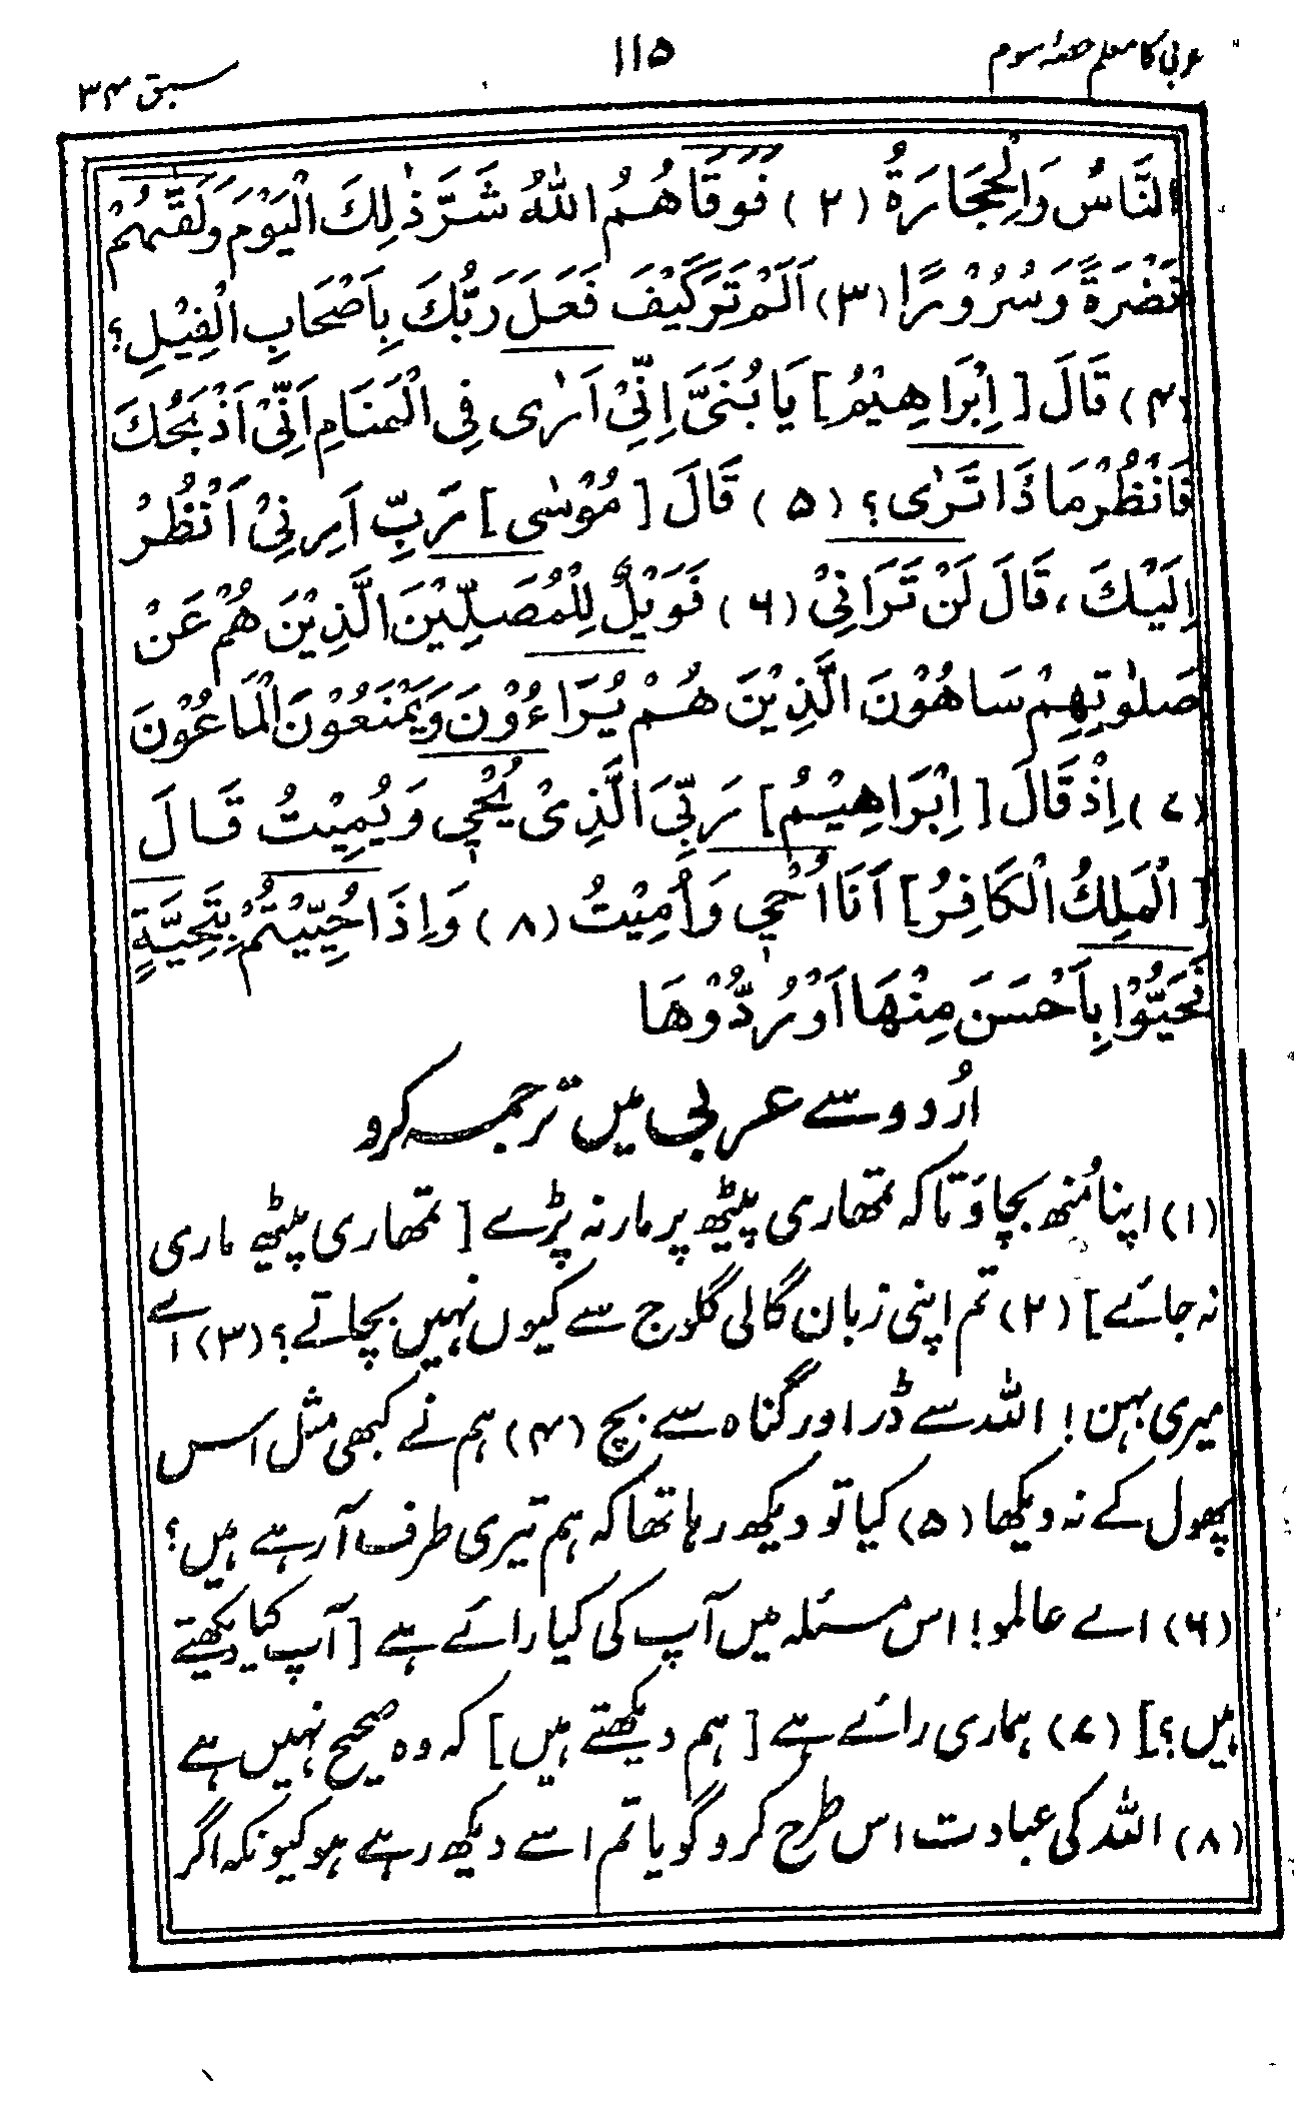 عربی کا معلم حصۂ سوم
۱۱۵
سبق ۳۴
النَّاسُ وَالْحِجَارَةُ (۲) فَوَقَاهُمُ اللهُ شَرَّ ذٰلِكَ الْيَوْمَ وَلَقّٰهُمْ
نَضْرَةً وَسُرُوْرًا (۳) اَلَمْ تَرَ كَيْفَ فَعَلَ رَبُّكَ بِاَصْحَابِ الْفِيْلِ؟
(۴) قَالَ [اِبْرَاهِيْمُ] يَا بُنَيَّ اِنِّيْ اَرٰى فِي الْمَنَامِ اَنِّيْ اَذْبَحُكَ
فَانْظُرْ مَاذَا تَرٰى؟ (۵) قَالَ [مُوْسٰى] رَبِّ اَرِنِيْ اَنْظُرْ
اِلَيْكَ، قَالَ لَنْ تَرَانِيْ (۶) فَوَيْلٌ لِلْمُصَلِّيْنَ الَّذِيْنَ هُمْ عَنْ
صَلٰوتِهِمْ سَاهُوْنَ الَّذِيْنَ هُمْ يُرَاءُوْنَ وَيَمْنَعُوْنَ الْمَاعُوْنَ
(۷) اِذْ قَالَ [اِبْرَاهِيْمُ] رَبِّيَ الَّذِيْ يُحْيِي وَيُمِيْتُ قَالَ
[الْمَلِكُ الْكَافِرُ] اَنَا اُحْيِي وَاُمِيْتُ (۸) وَاِذَا حُيِّيْتُمْ بِتَحِيَّةٍ
فَحَيُّوْا بِاَحْسَنَ مِنْهَا اَوْ رُدُّوْهَا
اُردو سے عربی میں ترجمہ کرو
(۱) اپنا مُنھ بچاؤ تاکہ تمھاری پیٹھ پر مار نہ پڑے [تمھاری پیٹھ ماری
نہ جائے] (۲) تم اپنی زبان گالی گلوج سے کیوں نہیں بچاتے؟ (۳) اے
میری بہن! اللہ سے ڈر اور گناہ سے بچ (۴) ہم نے کبھی مثل اس
پھول کے نہ دیکھا (۵) کیا تو دیکھ رہا تھا کہ ہم تیری طرف آرہے ہیں؟
(۶) اے عالمو! اس مسئلہ میں آپ کی کیا رائے ہے [آپ کیا دیکھتے
ہیں؟] (۷) ہماری رائے ہے [ہم دیکھتے ہیں] کہ وہ صحیح نہیں ہے
(۸) اللہ کی عبادت اس طرح کرو گویا تم اسے دیکھ رہے ہو کیونکہ اگر